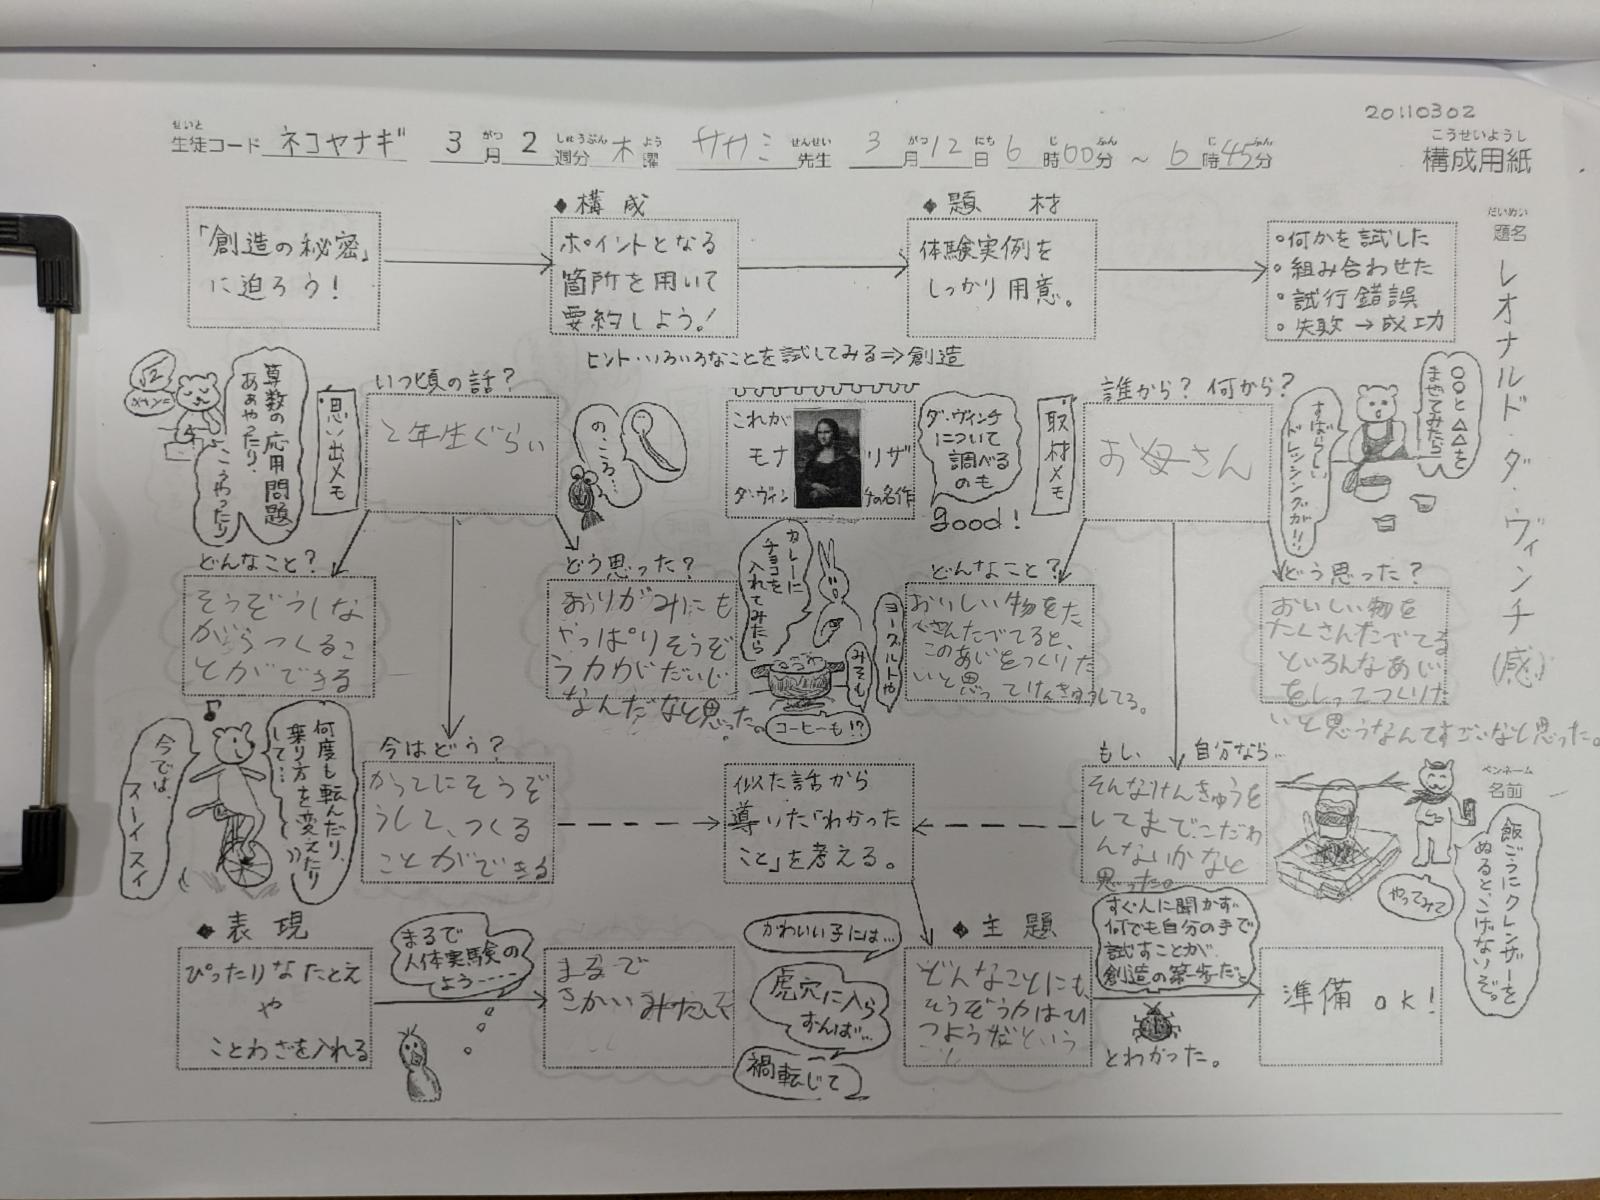 20110302
せいと
生徒コード ネコヤナギ 3月 2週分 木曜 ササミ先生 3月12日 6時00分 ~ 6時45分
がつ しゅうぶん よう せんせい がつ にち じ ふん じ ふん
こうせいようし
構成用紙
だいめい
題名
レオナルド・ダ・ヴィンチ(感)
ペンネーム
名前
「創造の秘密」
に迫ろう!
◆構成
ポイントとなる
箇所を用いて
要約しよう!
◆題材
体験実例を
しっかり用意。
・何かを試した
・組み合わせた
・試行錯誤
・失敗→成功
ヒント・いろいろなことを試してみる⇒創造
√2
x+y=
算数の応用問題
ああやったり、
こうやったり
思い出メモ
いつ頃の話?
2年生ぐらい
の、ころ…
これが
モナリザ
ダ・ヴィンチの名作
ダ・ヴィンチ
について
調べる
のも
good!
取材メモ
誰から?何から?
お母さん
〇〇と△△を
まぜてみたら
すばらしい
ドレッシングが!!
どんなこと?
そうぞうしな
がらつくるこ
とができる
どう思った?
おりがみにも
やっぱりそうぞ
う力がだいじ
なんだなと思った。
カレーに
チョコを
入れてみたら
ヨーグルトや
みそも
コーヒーも!?
どんなこと?
おいしい物をた
くさんたべてると、
このあじをつくりた
いと思ってけんきゅうしてる。
どう思った?
おいしい物を
たくさんたべてる
といろんなあじ
をしってつくりた
いと思うなんてすごいなと思った。
何度も転んだり、
乗り方を変えたり
して…
今では、
スーイスイ
今はどう?
かってにそうぞ
うして、つくる
ことができる
似た話から
導いた「わかった
こと」を考える。
もし 自分なら…
そんなけんきゅうを
してまでこだわ
んないかなと
思った。
飯ごうにクレンザーを
ぬると、こげないぞ。
やってみて
◆表現
ぴったりなたとえ
や
ことわざを入れる
まるで
人体実験の
よう……
まるで
かわいい子には…
虎穴に入ら
ずんば…
禍転じて
◆主題
どんなことにも
そうぞう力はひ
つようだという
こと
すぐ人に聞かず
何でも自分の手で
試すことが、
創造の第一歩だ。
とわかった。
準備 OK!